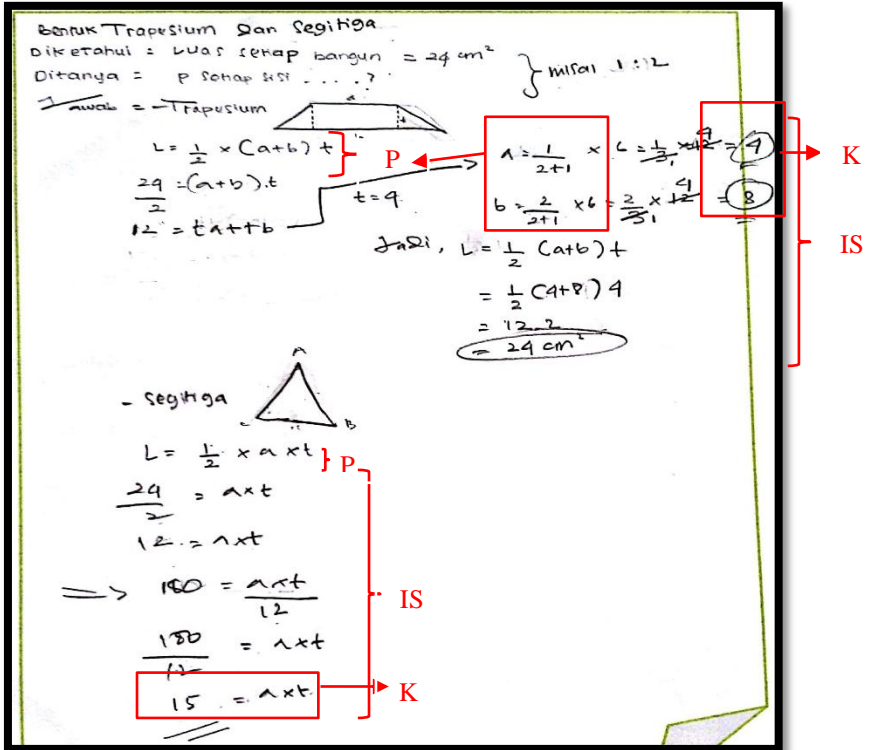 Bentuk Trapesium dan Segitiga
Diketahui : Luas setiap bangun = 24 cm²
Ditanya = P setiap sisi . . . . ? } misal 1 : 2
Jawab = - Trapesium
a
t
L = 1/2 × (a+b) t } P
24/2 = (a+b).t
12 = ta + tb
t = 4
a = 1/2+1 × 6 = 1/3 × 12 4 = 4 K
b = 2/2+1 × 6 = 2/3 1 × 12 4 = 8
IS
Jadi, L = 1/2 (a+b) t
= 1/2 (4+8) 4
= 12 . 2
= 24 cm²
- Segitiga
A
C
B
L = 1/2 × a × t } P
24/2 = a×t
12 = a×t
=> 180 = a×t/12
IS
180/12 = a×t
15 = a×t K